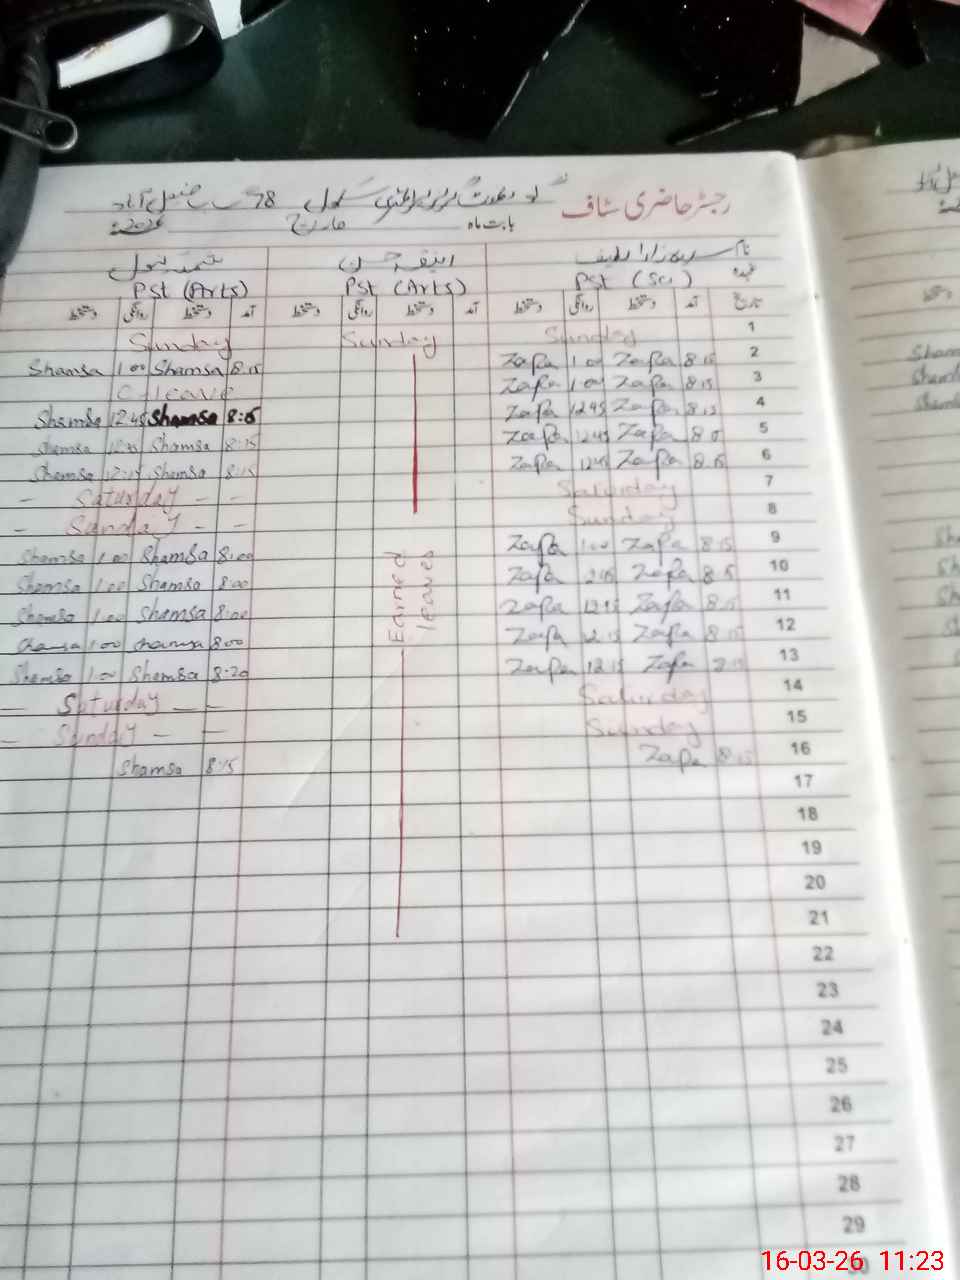 رجسٹر حاضری سٹاف گورنمنٹ گرلز پرائمری سکول 78 ج ب فیصل آباد
بابت ماہ مارچ 2026ء
نام
شمسہ بتول
عہدہ Pst (Sci) Pst (Arts) Pst (Arts)
تاریخ آمد دستخط روانگی دستخط آمد دستخط روانگی دستخط آمد دستخط روانگی دستخط
Sunday Sunday Sunday 1
Shamsa 1 00 Shamsa 8:15 Zafa 1 00 Zafa 8 15 2
C-leave Zafa 1 00 Zafa 8 15 3
Shamsa 12:45 Shamsa 8:15 Zafa 12 45 Zafa 8 15 4
Shamsa Shamsa 8:15 Zafa 12 45 Zafa 5
Shamsa 12:15 Shamsa 8:15 Zafa 12 45 Zafa 8 15 6
– Saturday – – Saturday 7
– Sunday – – Sunday 8
Shamsa 1 00 Shamsa 8:00 Zafa 1 00 Zafa 8 15 9
Shamsa 1:00 Shamsa 8:00 Zafa Zafa 8 15 10
Shamsa 1:00 Shamsa 8:00 Zafa 12 15 Zafa 8 15 11
Shamsa 1 00 Shamsa 8:00 Zafa 12 15 Zafa 8 15 12
Shamsa 1:00 Shamsa 8:20 Zafa 12 15 Zafa 13
– Saturday – – Saturday 14
– Sunday – – Sunday 15
Shamsa 8:15 Zafa 8 15 16
Earned
leaves
17
18
19
20
21
22
23
24
25
26
27
28
29
30
Sham
Sham
Sham
Sha
Sh
Sha
16-03-26 11:23